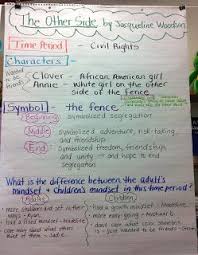 The Other Side by Jacqueline Woodson
Time Period Civil Rights
Characters
Wanted to be friends
Clover - African American girl
Annie - White girl on the other
side of the fence
Symbol - the fence
Beginning Symbolized segregation
Middle Symbolized adventure, risk-taking,
and friendship
End Symbolized freedom, friendships
and unity — and hope to end
Segregation
What is the difference between the adult's
mindset & children's mindset in this time period?
Adults
Children
had a fixed mindset
had a growth mindset
more easy-going
didn't care about skin color
just wanted to be friends